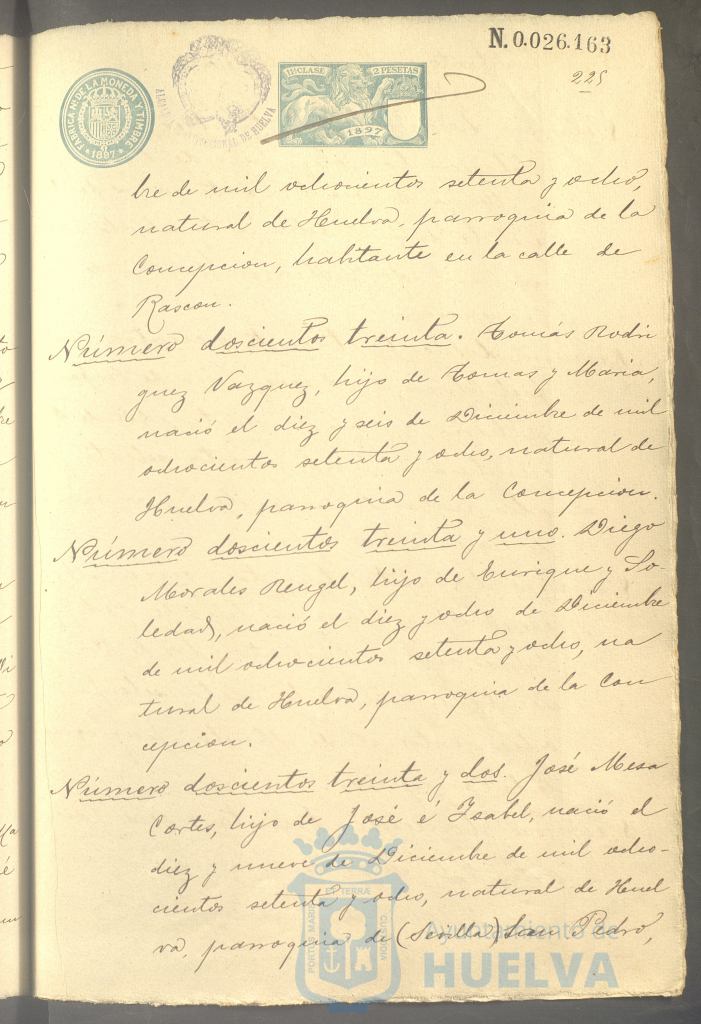 N.0.026.163
225
FABRICA Nl. DE LA MONEDA Y TIMBRE
* 1897 *
11ª CLASE 2 PESETAS
1897
DE HUELVA
bre de mil ochocientos setenta y ocho,
natural de Huelva, parroquia de la
Concepcion, habitante en la calle de
Rascon.
Número doscientos treinta. Tomás Rodri
guez Vazquez, hijo de Tomas y Maria,
nació el diez y seis de Diciembre de mil
ochocientos setenta y ocho, natural de
Huelva, parroquia de la Concepcion.
Número doscientos treinta y uno. Diego
Morales Rengel, hijo de Enrique y So-
ledad, nació el diez y ocho de Diciembre
de mil ochocientos setenta y ocho, na
tural de Huelva, parroquia de la Con
cepcion.
Número doscientos treinta y dos. José Mesa
Cortes, hijo de José é Isabel, nació el
diez y nueve de Diciembre de mil ocho-
cientos setenta y ocho, natural de Huel
va, parroquia de (Sevilla) San Pedro,
PORTUS MARIS ET TERRÆ CUSTODIA
Ayuntamiento de
HUELVA